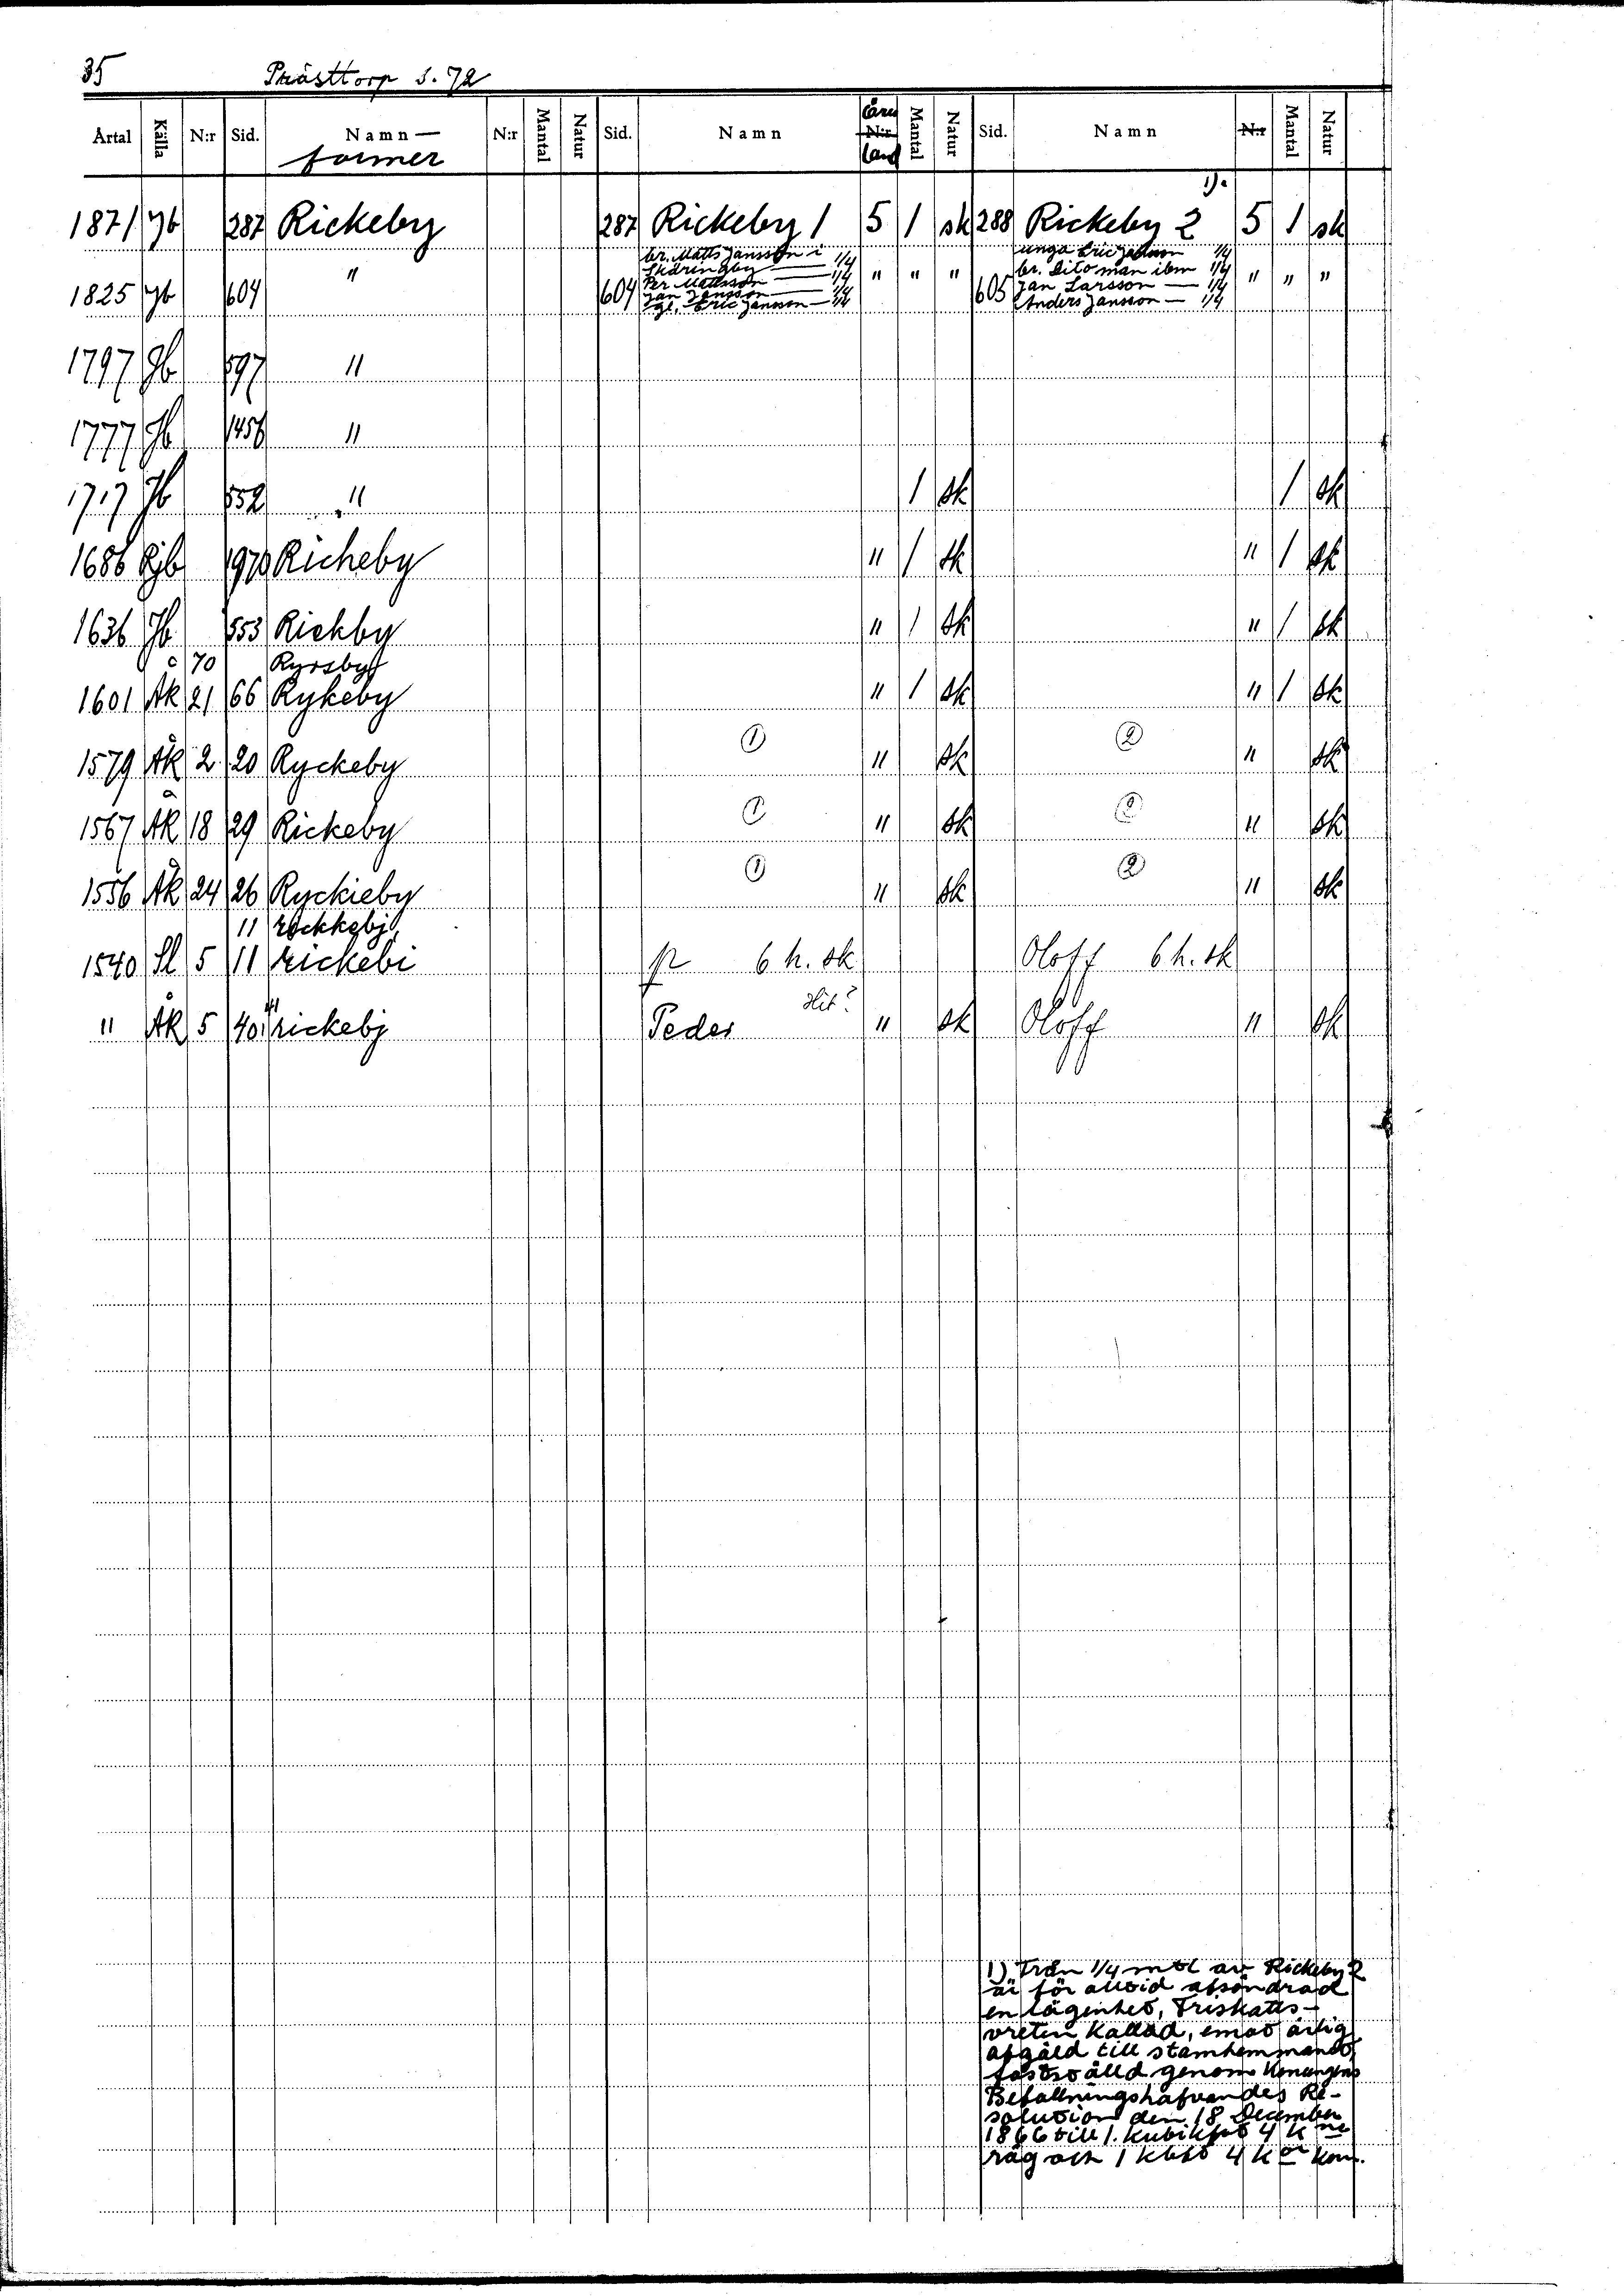 35 Prästtorp s. 72
Årtal Källa N:r Sid. Namn— former N:r Mantal Natur Sid. Namn N:r land Mantal Natur Sid. Namn N:r Mantal Natur
1).
1871 Jb 287 Rickeby 287 Rickeby 1 5 1 sk 288 Rickeby 2 5 1 sk
br. Matts Jansson i unga Eric Jansson 1/4
Skäringby — 1/4 br. Dito man ibm 1/4
1825 Jb 604 " 604 Per Mattsson — 1/4 " " " 605 Jan Larsson — 1/4 " " "
Jan Jansson — 1/4 Anders Jansson — 1/4
gl. Eric Jansson — 1/4
1797 Jb 597 "
1777 Jb 1456 "
1717 Jb 552 " 1 sk 1 sk
1686 Rjb 1970 Richeby " 1 sk " 1 sk
1636 Jb 553 Rickby " 1 sk " 1 sk
70 Ryrsby
1601 Åk 21 66 Rykeby " 1 sk " 1 sk
1579 Åk 2 20 Ryckeby 1 " sk 2 " sk
1567 Åk 18 29 Rickeby 1 " sk 2 " sk
1556 Åk 24 26 Ryckieby 1 " sk 2 " sk
11 rockkebj
1540 Sl 5 11 rickebi p 6 h. sk Oloff 6 h. sk
Hit?
" Åk 5 40, 41 rickebj Peder " sk Oloff " sk
1) Från 1/4 mtl av Rickeby 2
är för alltid afsöndrad
en lägenhet, Friskatts-
vreten kallad, emot årlig
afgäld till stamhemmanet,
fastställd genom Konungens
Befallningshafvandes Re-
solution den 18 December
1866 till 1. kubikfot 4 k ne
råg och 1 kbft 4 k or korn.